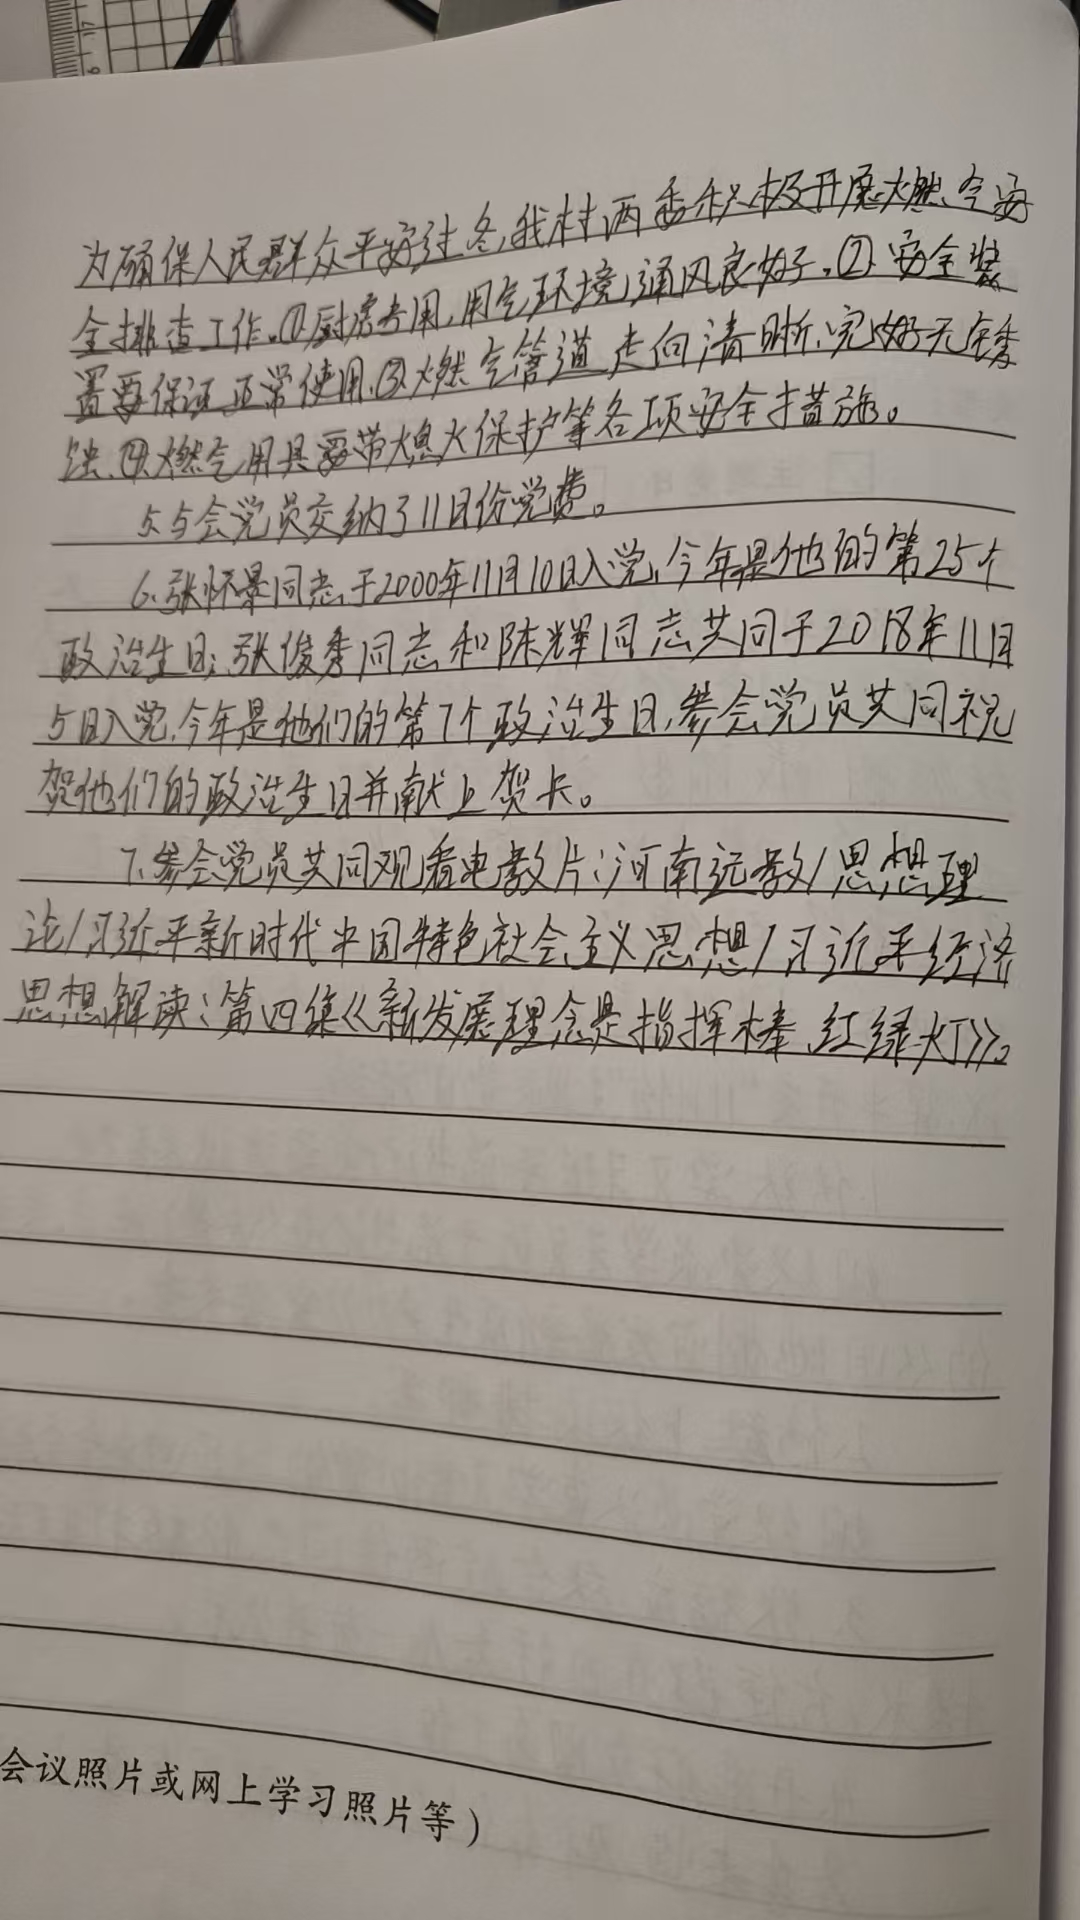 为确保人民群众平安过冬,我村两委积极开展燃气安
全排查工作。①厨房专用,用气环境通风良好。②安全装
置要保证正常使用.③燃气管道走向清晰、完好无锈
蚀.④燃气用具要带熄火保护等各项安全措施。
5.与会党员交纳了11月份党费。
6.张怀景同志于2000年11月10日入党,今年是他的第25个
政治生日;张俊秀同志和陈辉同志共同于2018年11月
5日入党,今年是他们的第7个政治生日,参会党员共同祝
贺他们的政治生日并献上贺卡。
7.参会党员共同观看电教片:河南远教/思想理
论/习近平新时代中国特色社会主义思想/习近平经济
思想解读:第四集《新发展理念是指挥棒、红绿灯》。
会议照片或网上学习照片等)